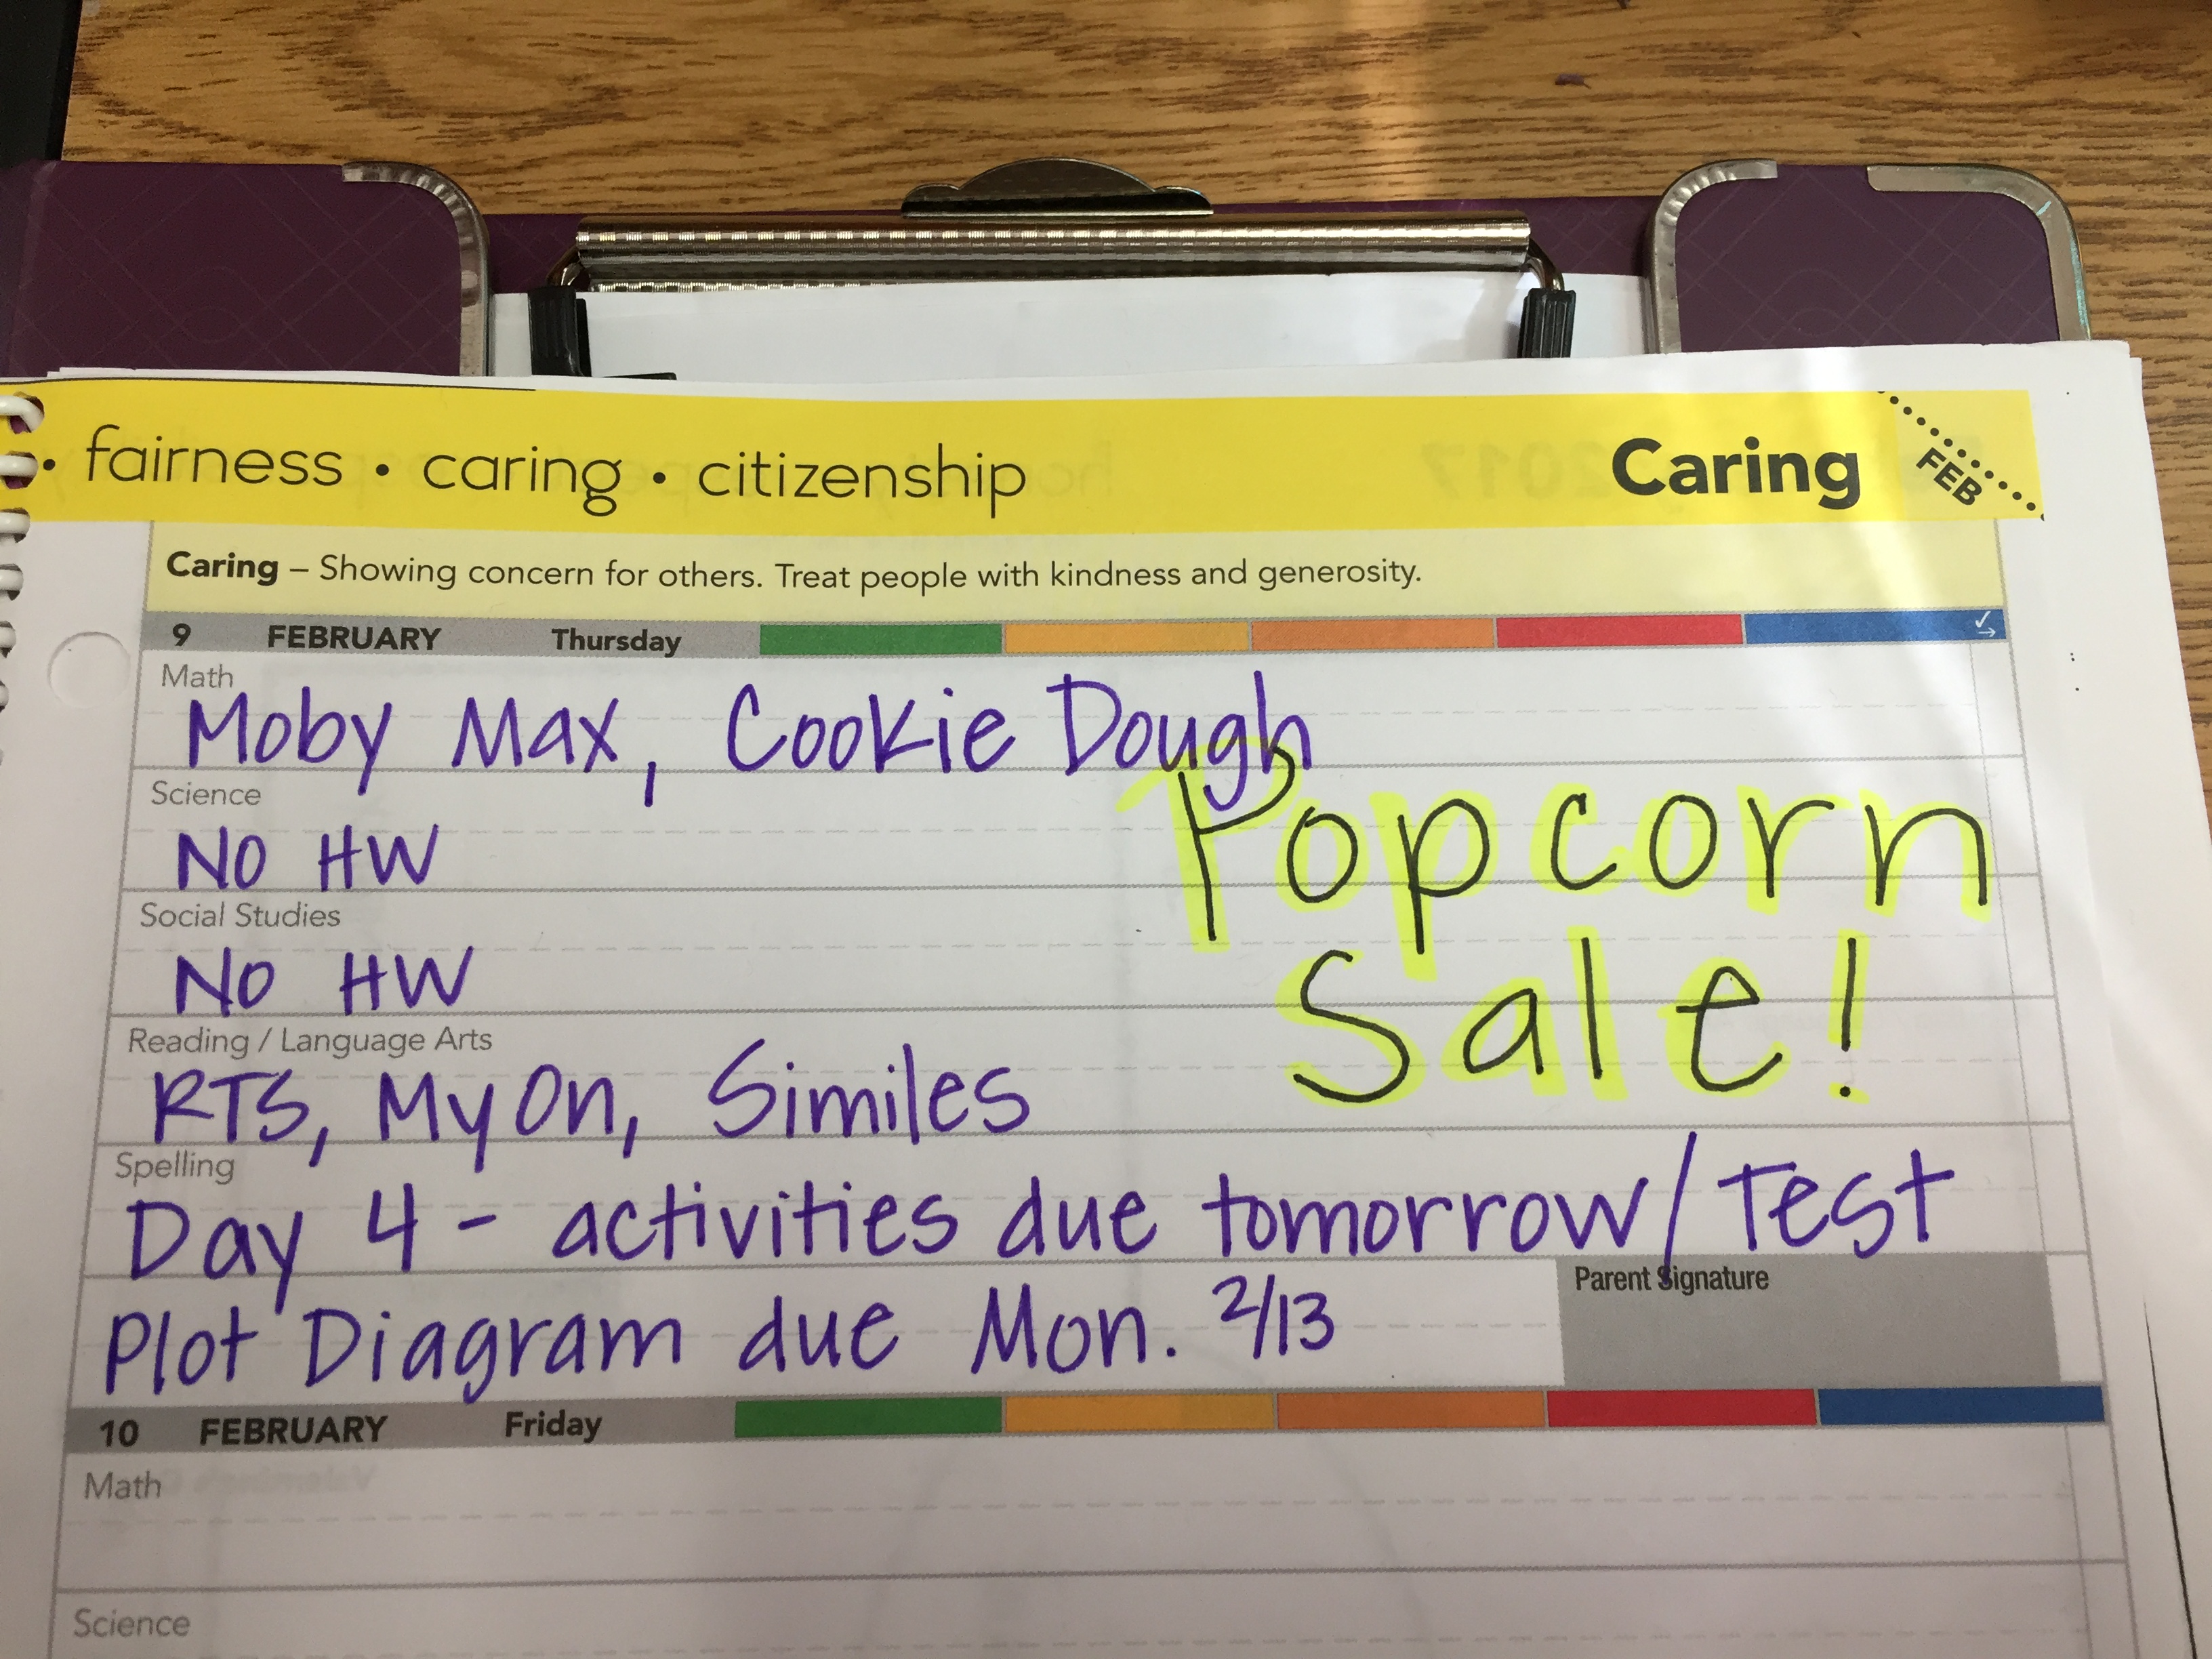 • fairness • caring • citizenship Caring FEB
Caring – Showing concern for others. Treat people with kindness and generosity.
9 FEBRUARY Thursday
Math
Moby Max, Cookie Dough
Science
No HW
Popcorn
Social Studies
No HW
Sale!
Reading / Language Arts
RTS, MyOn, Similes
Spelling
Day 4 - activities due tomorrow/Test
Parent Signature
Plot Diagram due Mon. 2/13
10 FEBRUARY Friday
Math
Science